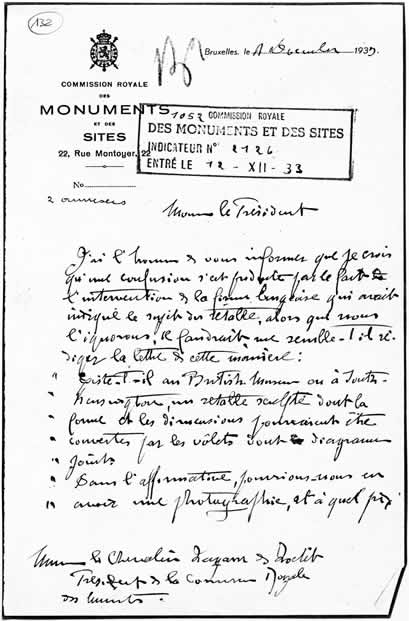 132
Bruxelles, le décembre 193
COMMISSION ROYALE
DES
MONUMENTS
ET DES
SITES
22, Rue Montoyer, 22
No
1052 COMMISSION ROYALE
DES MONUMENTS ET DES SITES
INDICATEUR N° 2126
ENTRÉ LE 12 - XII - 33
2 annexes
le Président
J'ai l'honneur de vous informer que je crois
qu'une confusion s'est produite par le fait
l'intervention de la firme qui avait
indiqué le sujet du retable, alors que nous
l'ignorons, il faudrait me semble-t-il ré-
diger la lettre de cette manière :
" Existe-t-il au British Museum ou à South-
" Kensington, un retable sculpté dont la
" forme et les dimensions pourraient être
" couvertes par les volets dont diagramme
" joints
" Dans l'affirmative, pourrions-nous en
" avoir une photographie, et à quel prix
le Chevalier de
Président de la Royale
des